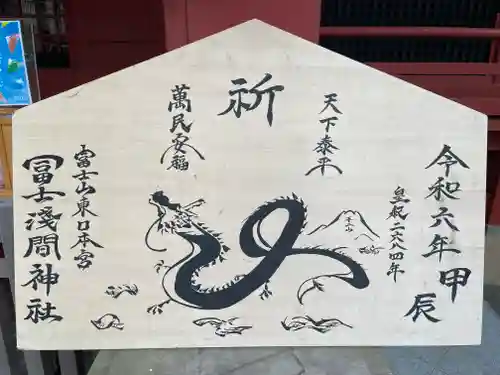 祈
天下泰平
萬民安福
令和六年甲辰
皇紀二六八四年
冨士山東口本宮
冨士淺間神社